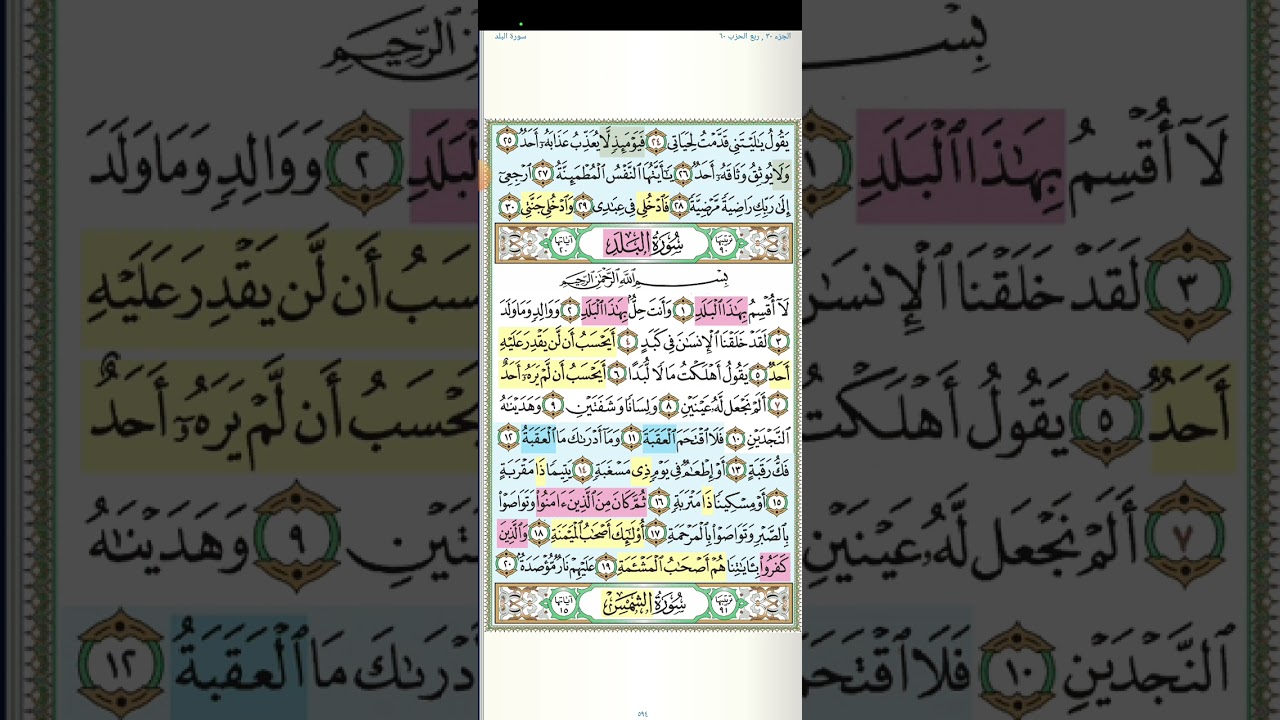 الجزء ٣٠ , ربع الحزب ٦٠
سورة البلد
يَقُولُ يَٰلَيْتَنِى قَدَّمْتُ لِحَيَاتِى ٢٤ فَيَوْمَئِذٍ لَّا يُعَذِّبُ عَذَابَهُۥٓ أَحَدٌ ٢٥
وَلَا يُوثِقُ وَثَاقَهُۥٓ أَحَدٌ ٢٦ يَٰٓأَيَّتُهَا ٱلنَّفْسُ ٱلْمُطْمَئِنَّةُ ٢٧ ٱرْجِعِىٓ
إِلَىٰ رَبِّكِ رَاضِيَةً مَّرْضِيَّةً ٢٨ فَٱدْخُلِى فِى عِبَٰدِى ٢٩ وَٱدْخُلِى جَنَّتِى ٣٠
ترتيبها ٩٠ سُورَةُ الْبَلَدِ آياتها ٢٠
بِسْمِ ٱللَّهِ ٱلرَّحْمَٰنِ ٱلرَّحِيمِ
لَآ أُقْسِمُ بِهَٰذَا ٱلْبَلَدِ ١ وَأَنتَ حِلٌّۢ بِهَٰذَا ٱلْبَلَدِ ٢ وَوَالِدٍ وَمَا وَلَدَ
٣ لَقَدْ خَلَقْنَا ٱلْإِنسَٰنَ فِى كَبَدٍ ٤ أَيَحْسَبُ أَن لَّن يَقْدِرَ عَلَيْهِ
أَحَدٌ ٥ يَقُولُ أَهْلَكْتُ مَالًا لُّبَدًا ٦ أَيَحْسَبُ أَن لَّمْ يَرَهُۥٓ أَحَدٌ
٧ أَلَمْ نَجْعَل لَّهُۥ عَيْنَيْنِ ٨ وَلِسَانًا وَشَفَتَيْنِ ٩ وَهَدَيْنَٰهُ
ٱلنَّجْدَيْنِ ١٠ فَلَا ٱقْتَحَمَ ٱلْعَقَبَةَ ١١ وَمَآ أَدْرَىٰكَ مَا ٱلْعَقَبَةُ ١٢
فَكُّ رَقَبَةٍ ١٣ أَوْ إِطْعَٰمٌ فِى يَوْمٍ ذِى مَسْغَبَةٍ ١٤ يَتِيمًا ذَا مَقْرَبَةٍ
١٥ أَوْ مِسْكِينًا ذَا مَتْرَبَةٍ ١٦ ثُمَّ كَانَ مِنَ ٱلَّذِينَ ءَامَنُوا۟ وَتَوَاصَوْا۟
بِٱلصَّبْرِ وَتَوَاصَوْا۟ بِٱلْمَرْحَمَةِ ١٧ أُو۟لَٰٓئِكَ أَصْحَٰبُ ٱلْمَيْمَنَةِ ١٨ وَٱلَّذِينَ
كَفَرُوا۟ بِـَٔايَٰتِنَا هُمْ أَصْحَٰبُ ٱلْمَشْـَٔمَةِ ١٩ عَلَيْهِمْ نَارٌ مُّؤْصَدَةٌۢ ٢٠
ترتيبها ٩١ سُورَةُ الشَّمْسِ آياتها ١٥
٥٩٤